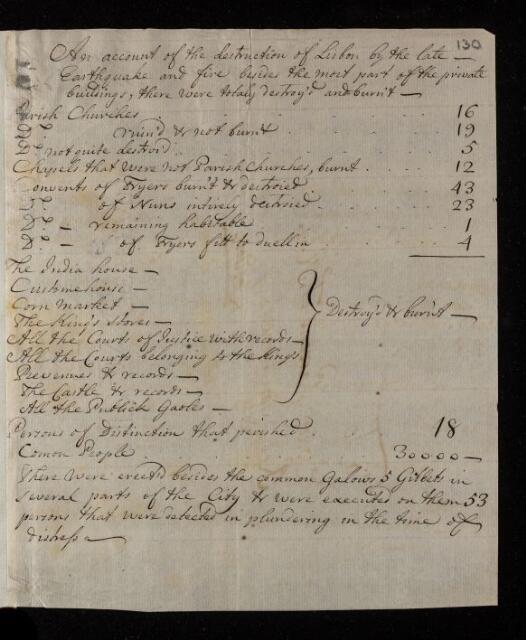 130
An account of the destruction of Lisbon by the late —
Earthquake and fire besides the most part of the private
buildings, there were totaly destroy'd and burn't —
Parish Churches . . . 16
Do ruin'd & not burn't . . . 19
Do not quite destroid . . . 5
Chapels that were not Parish Churches, burnt . . . 12
Convents of Fryers burn't & destroied . . . 43
Do of Nuns intirely destroied . . . 23
Do — remaining habitable . . . 1
Do — of Fryers fitt to dwell in . . . 4
The India house —
Custome house —
Corn Market —
The King's stores —
All the Courts of Justice with records —
All the Courts belonging to the Kings
Revenues & records —
The Castle & records —
All the Publick Gaoles —
Destroy'd & burn't —
Persons of Distinction that perished . 18
Comon People . . . 30000 —
There were erect'd besides the common Galows 5 Gibbets in
several parts of the City & were executed on them 53
persons that were detected in plundering in the time of
distress —